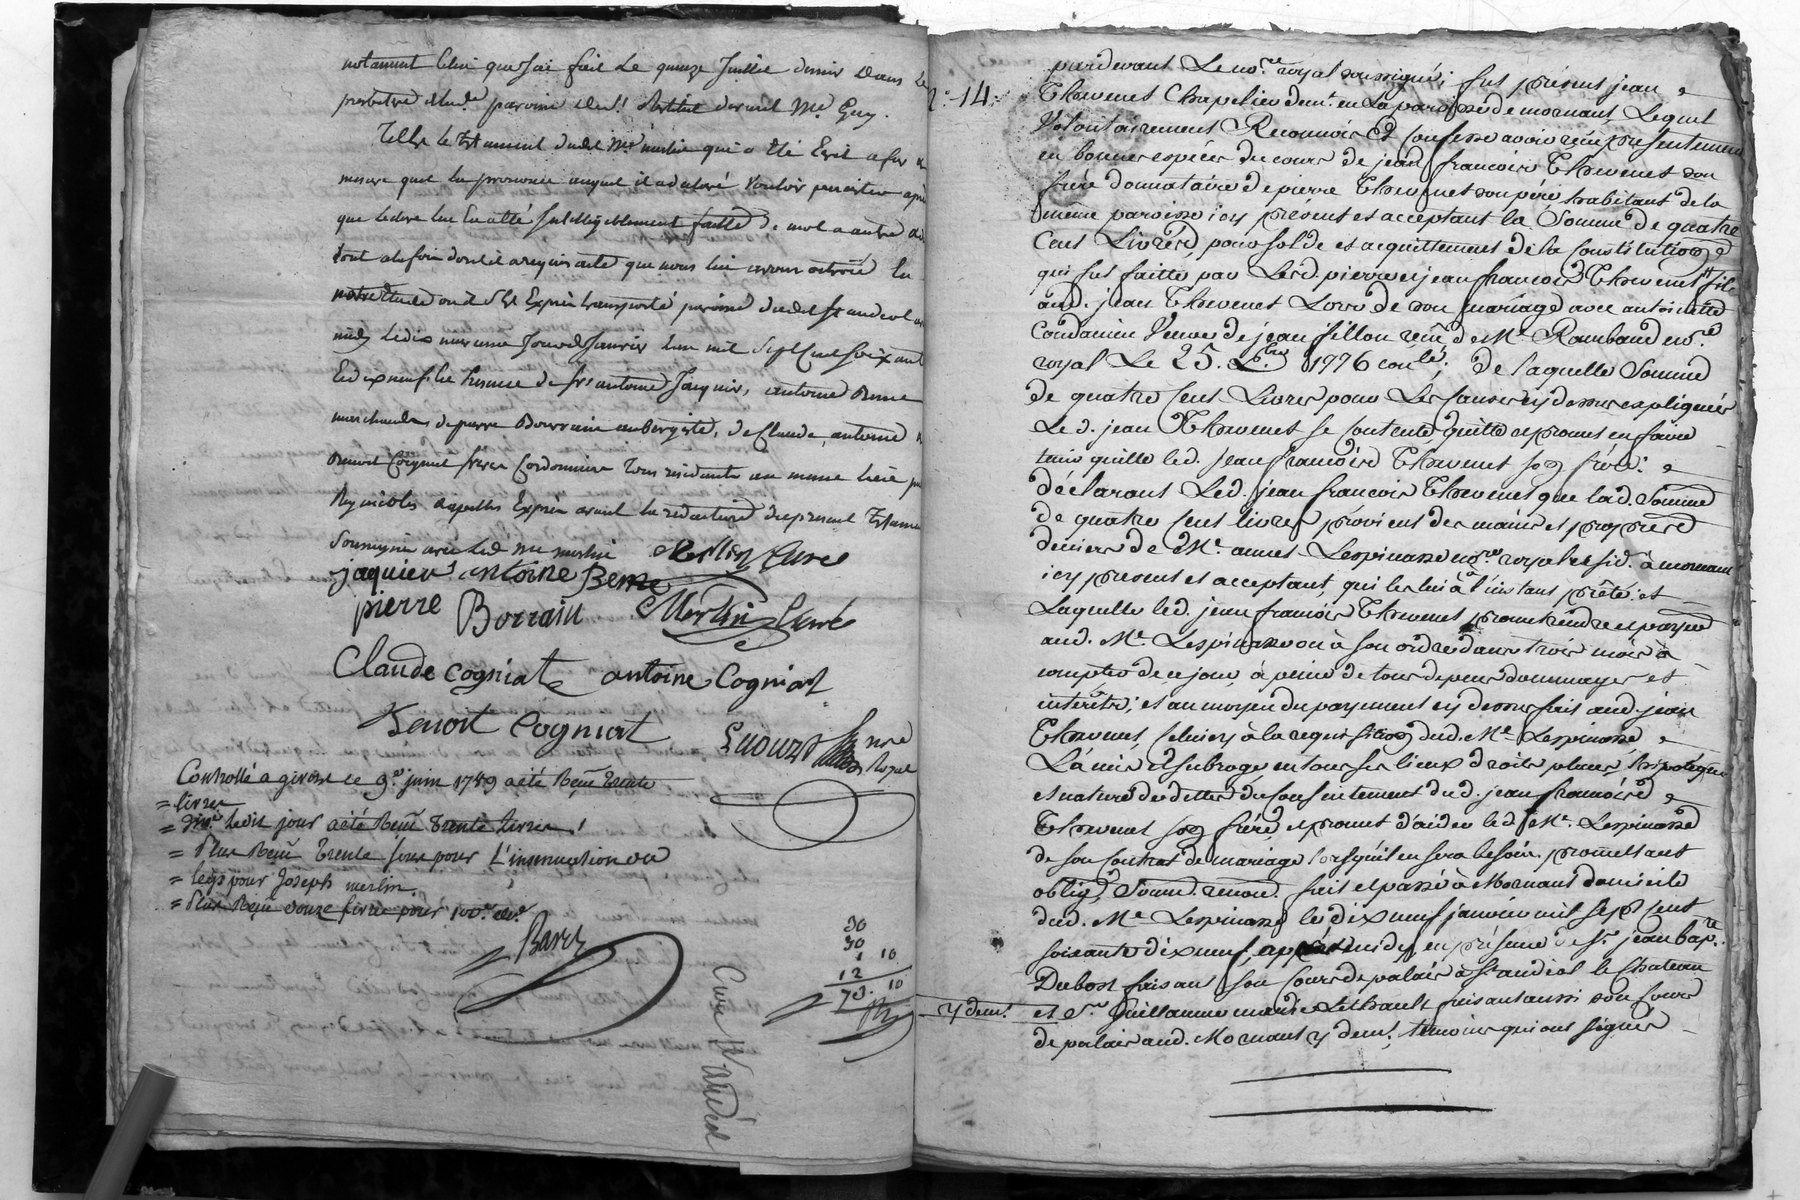 notament celui que j'ai fait le quinze Juillet dernier dans le
presbitere de lad.e paroisse de St Andéol devant Me Guy.
Telle le testament dudit Mre merlin qui a été Ecrit a fur a
mesure quil la prononcé auquel il a déclaré vouloir persister après
que lecture lui en a été Intelligiblement faitte de mot a autre
tout a la fin dont il a requis acte que nous lui avons octroié
Exprès transporté paroisse dudit St andeol
midy le dix neuvieme Jour de Janvier l'an mil Sept Cent soixante
Et dix neuf En presence de Srs antoine Jaquier, antoine Benne
marchands de pierre Borrain aubergiste, de Claude, antoine
Benoit Cogniat freres Cordonnier tous residants au meme lieu
Requis et appellés Exprès avant la redaction du present testament
soussignés avec led Mre merlin Merlin Curé
jaquier antoine Benne
pierre Borrain Merlin Curé
Claude cogniat antoine Cogniat
Benoit Cogniat
nore
Royal
Controllé a givors ce 9e juin 1789 a été Reçu trente
= livres
= led jour a été Reçu trente livres
= Plus Reçu trente sous pour L'insinuation du
= legs pour Joseph merlin.
= Plus Reçu douze livres pour
Barry
30
30
1 10
12
73. 10
Curé St andéol
N.° 14.
pardevant Le no.re royal soussigné; fut présent jean
Thevenet Chapelier dem.t en La paroisse de mornant Lequel
Volontairement Reconnoit Et confesse avoir reçu présentement
en bonnes espéces du cours de jean francois Thevenet son
frére donnataire de pierre Thevenet son pére habitant de la
même paroisse icy présent et acceptant la Somme de quatre
Cent Livres, pour solde et acquittement de la Constitution
qui fut faitte par Lesd. pierre et jean francois Thevenet
aud. jean Thevenet Lors de son mariage avec antoinette
Condamin Veuve de jean fillon reçu de Me Rambaud no.re
royal Le 25. 1776 con.lé; de laquelle Somme
de quatre Cent Livres pour Les causes cy dessus expliquées
Le d. jean Thevenet se contente, quitte et promet en faire
tenir quitte led. jean francois Thevenet son frére:
déclarant Led. jean francois Thevenet que lad. Somme
de quatre Cent livres provient des mains et propres
deniers de Me. annet Lespinasse no.re royal resid.t à mornant
icy présent et acceptant, qui les lui a à l'instant prêté: et
Laquelle led. jean francois Thevenet promet rendre et payer
aud. Me Lespinasse ou à son ordre dans trois mois à
compter de ce jour, à peine de tous depens dommages et
intérêts; et au moyen du payement cy dessus fait aud. jean
Thevenet, celui cy à la requisition dud. Me Lespinasse
L'a mis et subrogé en tous ses lieux droits places, hipotéques
et nature de dettes du consentement dud. jean francois
Thevenet son frére, et promet d'aider led. Me. Lespinasse
de son Contrat de mariage lorsqu'il en sera besoin. promettant
oblig.t Soum.t renonc.t fait et passé à Mornant domicile
dud. Me Lespinasse le dix neuf janvier mil sept cent
soixante dix neuf, après midy, en présence de Sr. jean bap.te
Dubost faisant son Cours de palais à St andéol le Chateau
y dem.t et Sr. Guillaume marie Lethrault faisant aussi son Cours
de palais aud. Mornant y dem.t, témoins qui ont signés